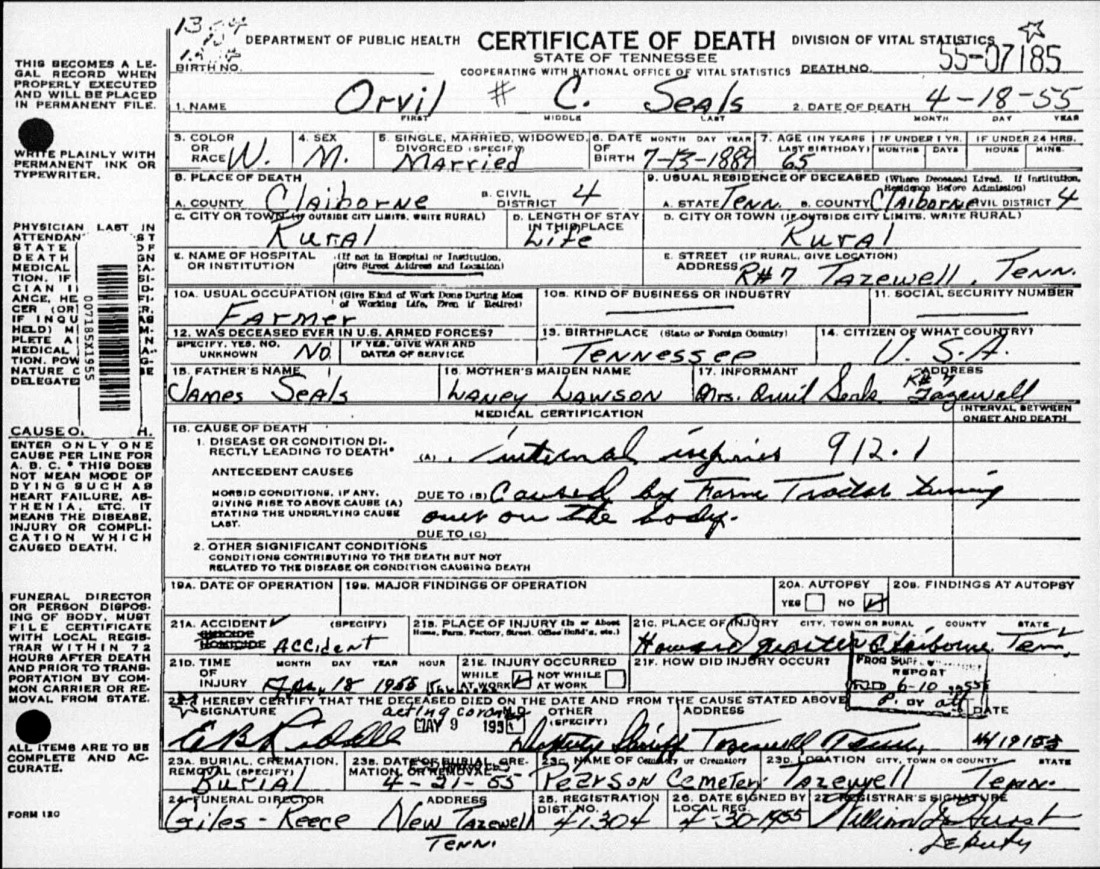 13
DEPARTMENT OF PUBLIC HEALTH CERTIFICATE OF DEATH DIVISION OF VITAL STATISTICS
STATE OF TENNESSEE
BIRTH NO. COOPERATING WITH NATIONAL OFFICE OF VITAL STATISTICS DEATH NO. 55-07185
1. NAME Orvil # C. Seals 2. DATE OF DEATH 4-18-55
FIRST MIDDLE LAST MONTH DAY YEAR
3. COLOR OR RACE W. 4. SEX M. 5. SINGLE, MARRIED, WIDOWED, DIVORCED (SPECIFY) Married 6. DATE OF BIRTH MONTH DAY YEAR 7-13-1889 7. AGE (IN YEARS LAST BIRTHDAY) 65 IF UNDER 1 YR. MONTHS DAYS IF UNDER 24 HRS. HOURS MINS.
8. PLACE OF DEATH 9. USUAL RESIDENCE OF DECEASED (Where Deceased Lived. If Institution, Residence Before Admission)
A. COUNTY Claiborne B. CIVIL DISTRICT 4 A. STATE Tenn. B. COUNTY Claiborne CIVIL DISTRICT 4
C. CITY OR TOWN (IF OUTSIDE CITY LIMITS, WRITE RURAL) Rural D. LENGTH OF STAY IN THIS PLACE Life D. CITY OR TOWN (IF OUTSIDE CITY LIMITS, WRITE RURAL) Rural
E. NAME OF HOSPITAL OR INSTITUTION (If not in Hospital or Institution, Give Street Address and Location) E. STREET (IF RURAL, GIVE LOCATION) ADDRESS R#7 Tazewell, Tenn.
10A. USUAL OCCUPATION (Give Kind of Work Done During Most of Working Life, Even if Retired) Farmer 10B. KIND OF BUSINESS OR INDUSTRY 11. SOCIAL SECURITY NUMBER
12. WAS DECEASED EVER IN U.S. ARMED FORCES? SPECIFY, YES, NO, UNKNOWN No IF YES, GIVE WAR AND DATES OF SERVICE 13. BIRTHPLACE (State or Foreign Country) Tennessee 14. CITIZEN OF WHAT COUNTRY? U. S. A.
15. FATHER'S NAME James Seals 16. MOTHER'S MAIDEN NAME Laney Lawson 17. INFORMANT Mrs. Orvil Seals ADDRESS R#7 Tazewell
MEDICAL CERTIFICATION
INTERVAL BETWEEN ONSET AND DEATH
18. CAUSE OF DEATH
1. DISEASE OR CONDITION DIRECTLY LEADING TO DEATH* (A) internal injuries 912.1
ANTECEDENT CAUSES
MORBID CONDITIONS, IF ANY, GIVING RISE TO ABOVE CAUSE (A) STATING THE UNDERLYING CAUSE LAST.
DUE TO (B) Caused by Farm Tractor turning
over on the body.
DUE TO (C)
2. OTHER SIGNIFICANT CONDITIONS
CONDITIONS CONTRIBUTING TO THE DEATH BUT NOT
RELATED TO THE DISEASE OR CONDITION CAUSING DEATH
19A. DATE OF OPERATION 19B. MAJOR FINDINGS OF OPERATION 20A. AUTOPSY YES NO 20B. FINDINGS AT AUTOPSY
21A. ACCIDENT SUICIDE HOMICIDE (SPECIFY) Accident 21B. PLACE OF INJURY (In or About Home, Farm, Factory, Street, Office Build'g, etc.) 21C. PLACE OF INJURY CITY, TOWN OR RURAL, COUNTY STATE Howard Claiborne Tenn.
21D. TIME OF INJURY MONTH DAY YEAR HOUR 18 1955 21E. INJURY OCCURRED WHILE AT WORK NOT WHILE AT WORK 21F. HOW DID INJURY OCCUR?
REPORT
6-10
22. I HEREBY CERTIFY THAT THE DECEASED DIED ON THE DATE AND FROM THE CAUSE STATED ABOVE
SIGNATURE acting coroner OTHER (SPECIFY) ADDRESS DATE
MAY 9
Deputy Sheriff Tazewell Tenn. 4/19/55
23A. BURIAL, CREMATION, REMOVAL (SPECIFY) Burial 23B. DATE OF BURIAL, CREMATION, OR REMOVAL 4-21-55 23C. NAME OF Cemetery or Crematory Peerson Cemetery 23D. LOCATION CITY, TOWN OR COUNTY STATE Tazewell Tenn.
24. FUNERAL DIRECTOR Giles-Reece ADDRESS New Tazewell Tenn. 25. REGISTRATION DIST. NO. 41304 26. DATE SIGNED BY LOCAL REG. 4-30-1955 27. REGISTRAR'S SIGNATURE
Deputy
THIS BECOMES A LE-
GAL RECORD WHEN
PROPERLY EXECUTED
AND WILL BE PLACED
IN PERMANENT FILE.
WRITE PLAINLY WITH
PERMANENT INK OR
TYPEWRITER.
PHYSICIAN LAST IN
STATE
DEATH
MEDICAL
007185X1955
CAUSE
ENTER ONLY ONE
CAUSE PER LINE FOR
A. B. C. * THIS DOES
NOT MEAN MODE OF
DYING SUCH AS
HEART FAILURE, AS-
THENIA, ETC. IT
MEANS THE DISEASE,
INJURY OR COMPLI-
CATION WHICH
CAUSED DEATH.
FUNERAL DIRECTOR
OR PERSON DISPOS-
ING OF BODY, MUST
FILE CERTIFICATE
WITH LOCAL REGIS-
TRAR WITHIN 72
HOURS AFTER DEATH
AND PRIOR TO TRANS-
PORTATION BY COM-
MON CARRIER OR RE-
MOVAL FROM STATE.
ALL ITEMS ARE TO BE
COMPLETE AND AC-
CURATE.
FORM 120